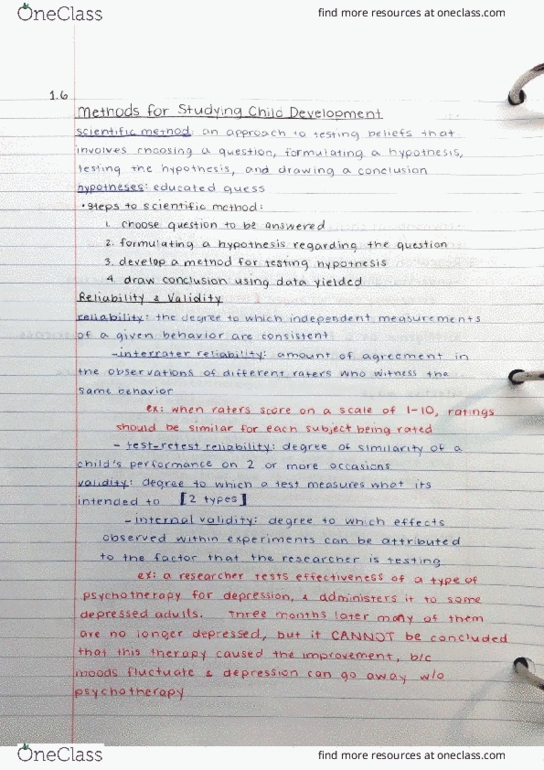 OneClass
find more resources at oneclass.com
1.6
Methods for Studying Child Development
scientific method: an approach to testing beliefs that
involves choosing a question, formulating a hypothesis,
testing the hypothesis, and drawing a conclusion
hypotheses: educated guess
• steps to scientific method:
1. choose question to be answered
2. formulating a hypothesis regarding the question
3. develop a method for testing hypothesis
4. draw conclusion using data yielded
Reliability & Validity
reliability: the degree to which independent measurements
of a given behavior are consistent
- interrater reliability: amount of agreement in
the observations of different raters who witness the
same behavior
ex: when raters score on a scale of 1-10, ratings
should be similar for each subject being rated
- test-retest reliability: degree of similarity of a
child's performance on 2 or more occasions
validity: degree to which a test measures what its
intended to [2 types]
- internal validity: degree to which effects
observed within experiments can be attributed
to the factor that the researcher is testing
ex: a researcher tests effectiveness of a type of
psychotherapy for depression, & administers it to some
depressed adults. Three months later many of them
are no longer depressed, but it CANNOT be concluded
that this therapy caused the improvement, b/c
moods fluctuate & depression can go away w/o
psychotherapy
OneClass
find more resources at oneclass.com